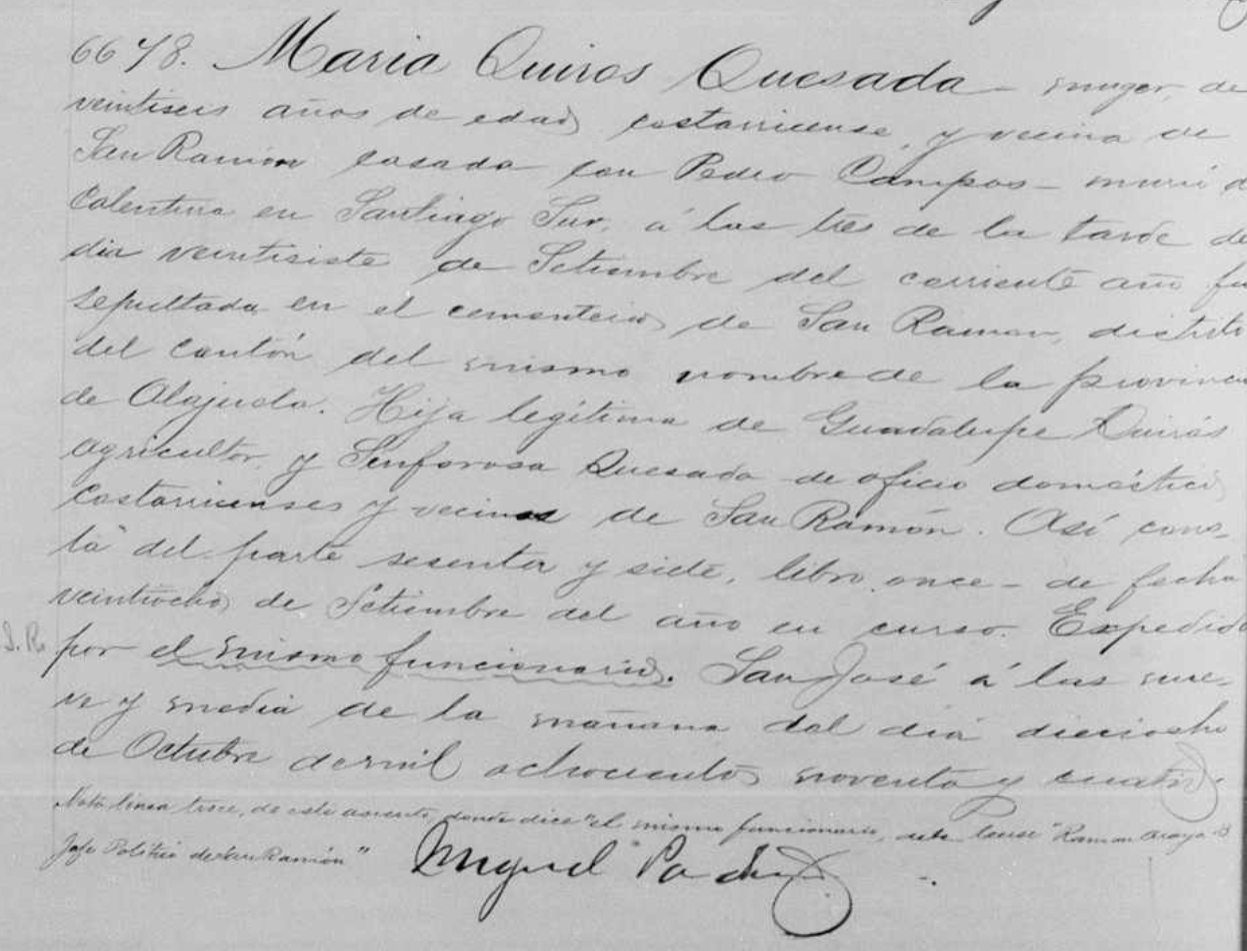 6678. Maria Quiros Quesada - muger, de
veintiseis años de edad, costarricense, y vecina de
San Ramón casada con Pedro Campos - murió d
Calentura en Santiago Sur, á las tres de la tarde de
dia veintisiete de Setiembre del corriente año fu
sepultada en el cementerio de San Ramon, distrito
del cantón del mismo nombre de la provincia
de Alajuela. Hija legítima de Guadalupe Quirós
agricultor, y Sinforosa Quesada de oficio doméstico
costarricenses y vecinos de San Ramón. Así cons-
ta del parte sesenta y siete, libro once - de fecha
veintiocho de Setiembre del año en curso. Expedido
S. R. por el mismo funcionario. San José á las nue-
ve y media de la mañana del dia dieciocho
de Octubre de mil ochocientos noventa y cuatro.
Nota: linea trece, de este asiento, donde dice "el mismo funcionario, debe leerse "Ramon Araya
Jefe Político de San Ramón"
Miguel